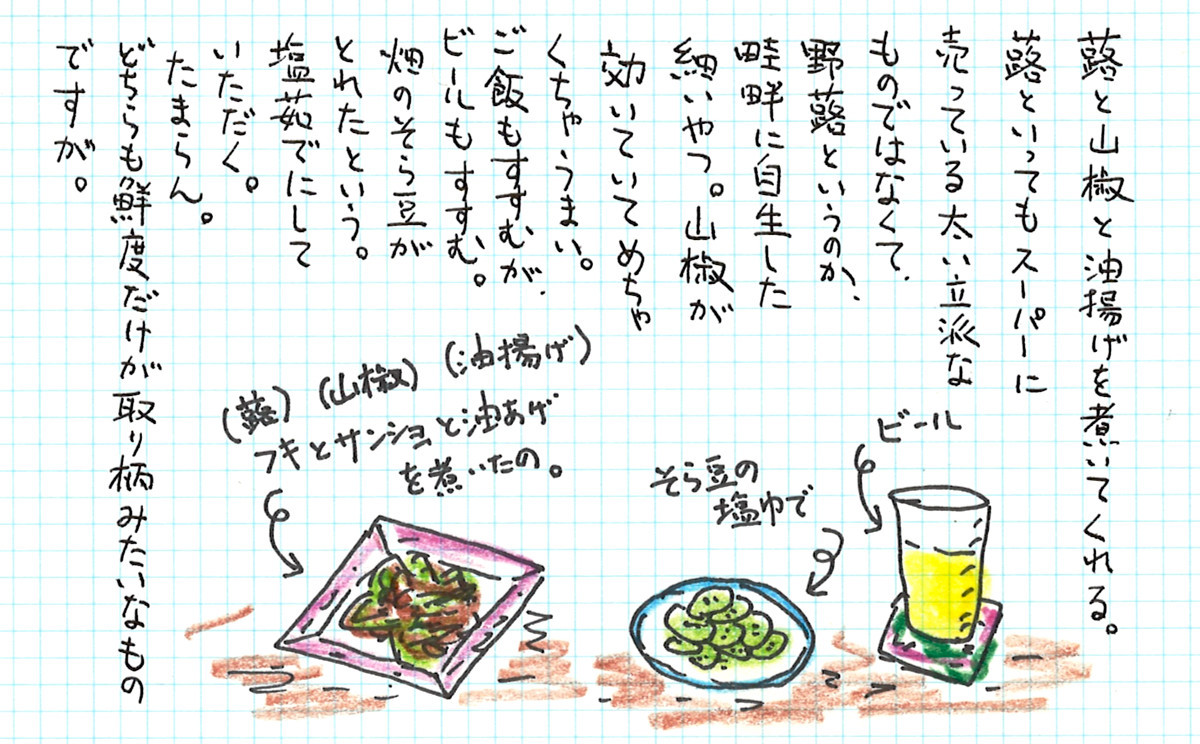 蕗と山椒と油揚げを煮いてくれる。
蕗といってもスーパーに
売っている太い立派な
ものではなくて、
野蕗というのか、
畦畔に自生した
細いやつ。山椒が
効いていてめちゃ
くちゃうまい。
ご飯もすすむが、
ビールもすすむ。
畑のそら豆が
とれたという。
塩茹でにして
いただく。
たまらん。
どちらも鮮度だけが取り柄みたいなもの
ですが。
(蕗) (山椒) (油揚げ)
フキとサンショと油あげ
を煮いたの。
そら豆の
塩ゆで
ビール